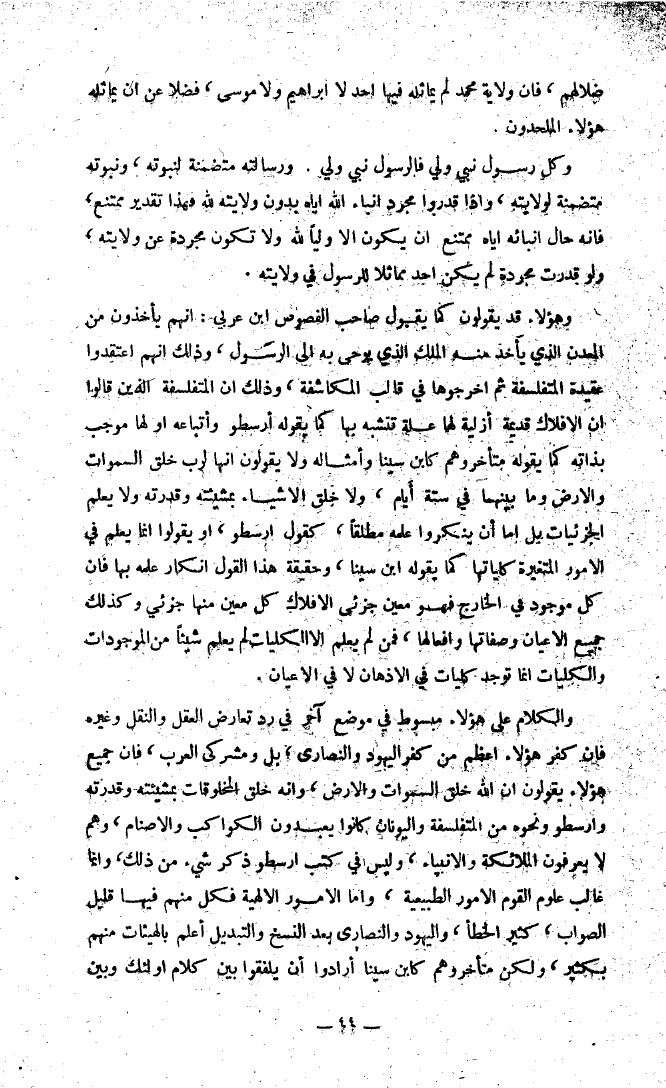 ضلالهم ، فان ولاية محمد لم يماثله فيها احد لا ابراهيم ولا موسى ، فضلا عن ان يماثله
هؤلاء الملحدون .
وكل رسول نبي ولي فالرسول نبي ولي . ورسالته متضمنة لنبوته ، ونبوته
متضمنة لولايته ، واذا قدروا مجرد انباء الله اياه بدون ولايته لله فهذا تقدير ممتنع ،
فانه حال انبائه اياه ممتنع ان يكون الا ولياً لله ولا تكون مجردة عن ولايته ،
ولو قدرت مجردة لم يكن احد مماثلا للرسول في ولايته .
وهؤلاء قد يقولون كما يقول صاحب الفصوص ابن عربي : انهم يأخذون من
المعدن الذي يأخذ منه الملك الذي يوحى به الى الرسول ، وذلك انهم اعتقدوا
عقيدة المتفلسفة ثم اخرجوها في قالب المكاشفة ، وذلك ان المتفلسفة الذين قالوا
ان الافلاك قديمة أزلية لها علة تتشبه بها كما يقوله أرسطو وأتباعه او لها موجب
بذاته كما يقوله متأخروهم كابن سينا وأمثاله ولا يقولون انها لرب خلق السموات
والارض وما بينهما في ستة أيام ، ولا خلق الاشياء بمشيئته وقدرته ولا يعلم
الجزئيات بل اما أن ينكروا علمه مطلقاً ، كقول ارسطو ، او يقولوا انما يعلم في
الامور المتغيرة كلياتها كما يقوله ابن سينا ، وحقيقة هذا القول انكار علمه بها فان
كل موجود في الخارج فهو معين جزئي الافلاك كل معين منها جزئي وكذلك
جميع الاعيان وصفاتها وافعالها ، فمن لم يعلم الا الكليات لم يعلم شيئاً من الموجودات
والكليات انما توجد كليات في الاذهان لا في الاعيان .
والكلام على هؤلاء مبسوط في موضع آخر في رد تعارض العقل والنقل وغيره
فان كفر هؤلاء اعظم من كفر اليهود والنصارى ، بل ومشركي العرب ، فان جميع
هؤلاء يقولون ان الله خلق السموات والارض ، وانه خلق المخلوقات بمشيئته وقدرته
وارسطو ونحوه من المتفلسفة واليونان كانوا يعبدون الكواكب والاصنام ، وهم
لا يعرفون الملائكة والانبياء ، وليس في كتب ارسطو ذكر شيء من ذلك ، وانما
غالب علوم القوم الامور الطبيعية ، واما الامور الالهية فكل منهم فيها قليل
الصواب ، كثير الخطأ ، واليهود والنصارى بعد النسخ والتبديل أعلم بالهيئات منهم
بكثير ، ولكن متأخروهم كابن سينا أرادوا أن يلفقوا بين كلام اولئك وبين
— ٤٤ —